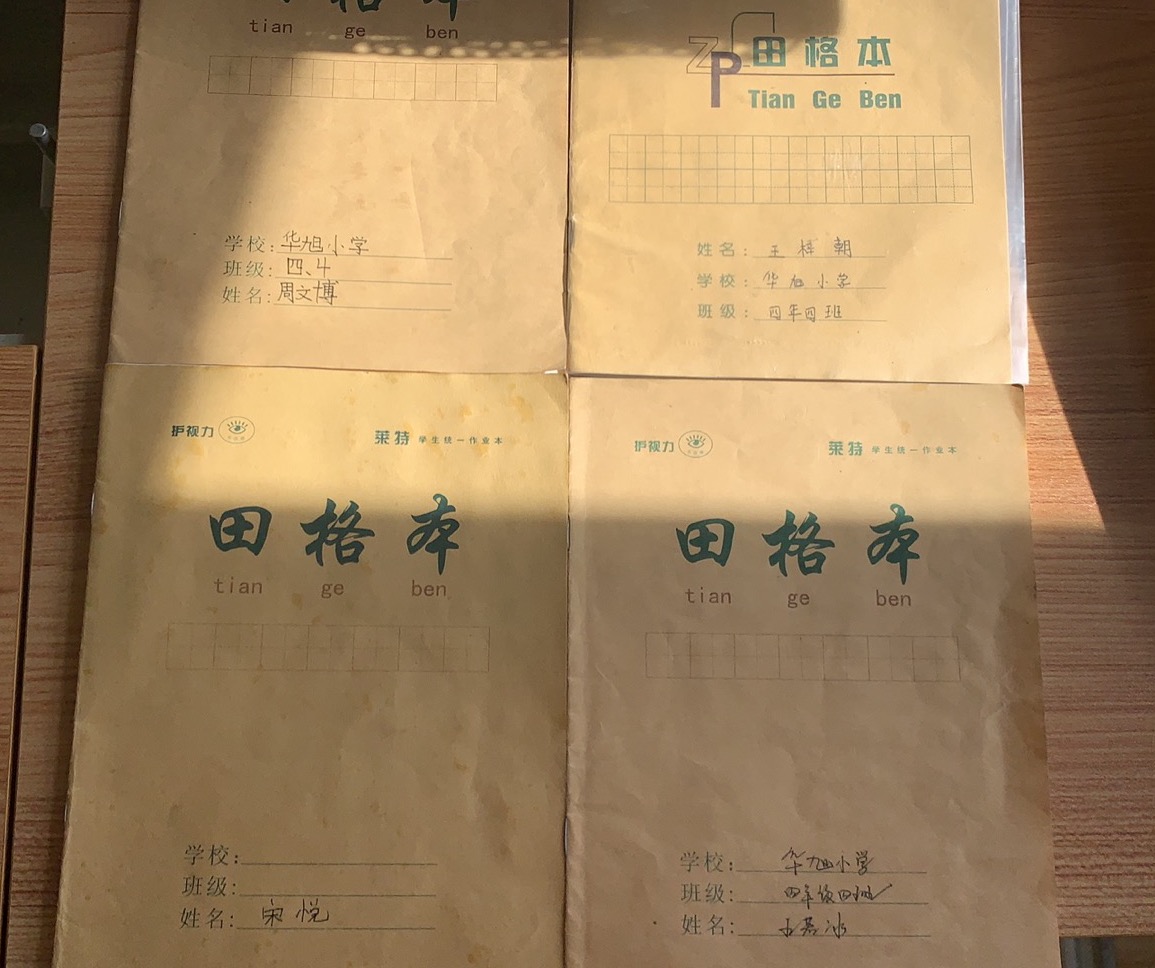 tian ge ben
学校: 华旭小学
班级: 四、4
姓名: 周文博
ZP 田格本
Tian Ge Ben
姓名: 王梓朝
学校: 华旭小学
班级: 四年四班
护视力 莱特 学生统一作业本
田格本
tian ge ben
学校:
班级:
姓名: 宋悦
护视力 莱特 学生统一作业本
田格本
tian ge ben
学校: 华旭小学
班级: 四年级四班
姓名: 王若冰